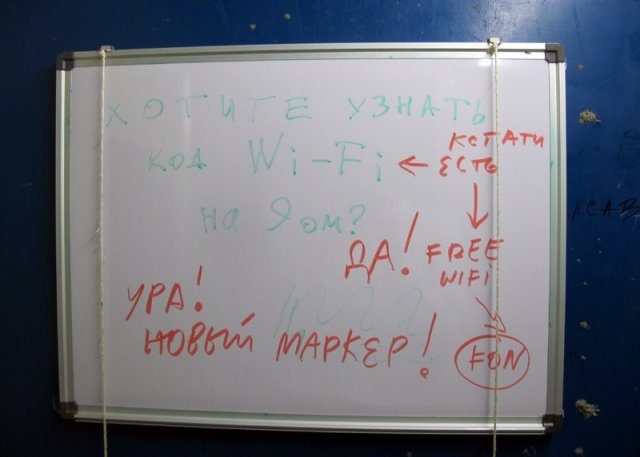 ХОТИТЕ УЗНАТЬ
код Wi-Fi ← ЕСТЬ КСТАТИ
на Яом?
ДА! FREE
WIFI
FON
УРА!
НОВЫЙ МАРКЕР!
АСАВ